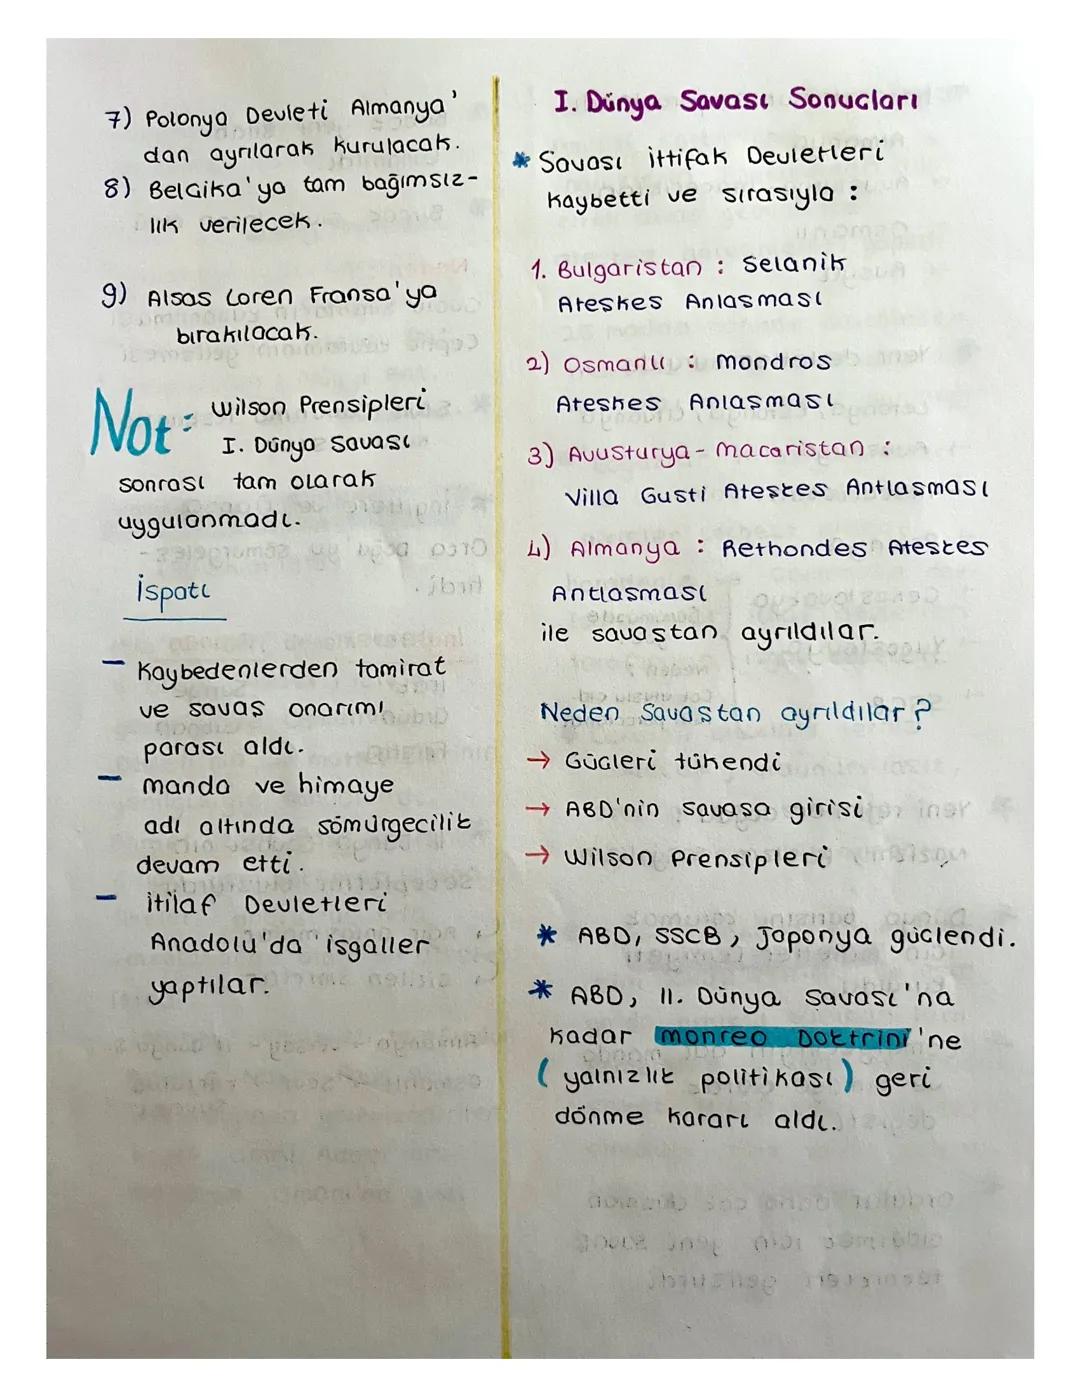 7) Polonya Devleti Almanya'
dan ayrılarak kurulacak.
8) Belgika'ya tam bağımsız-
lık verilecek.
9) Alsas Loren Fransa'ya
bırakılacak.
Not: Wilson Prensipleri
I. Dünya Savası
sonrası tam olarak
uygulanmadı.
İspatı
- Kaybedenlerden tamirat
ve savaş onarımı
parası aldı.
- manda ve himaye
adı altında sömürgecilik
devam etti.
- itilaf Devletleri
Anadolu'da işgaller
yaptılar.
I. Dünya Savası Sonucları
* Savası ittifak Devletleri
kaybetti ve sırasıyla :
1. Bulgaristan : Selanik
Ateşkes Anlaşması
2) Osmanlı : mondros
Ateşkes Anlaşması
3) Avusturya - macaristan :
Villa Gusti Ateskes Antlasması
4) Almanya : Rethondes Ateskes
Antlasması
ile savaştan ayrıldılar.
Neden Savaştan ayrıldılar?
→ Gücleri tükendi
→ ABD'nin savasa girisi
→ Wilson Prensipleri
* ABD, SSCB, Japonya güclendi.
* ABD, II. Dünya Savası'na
kadar monreo Doktrini'ne
(yalnızlık politikası) geri
dönme kararı aldı.